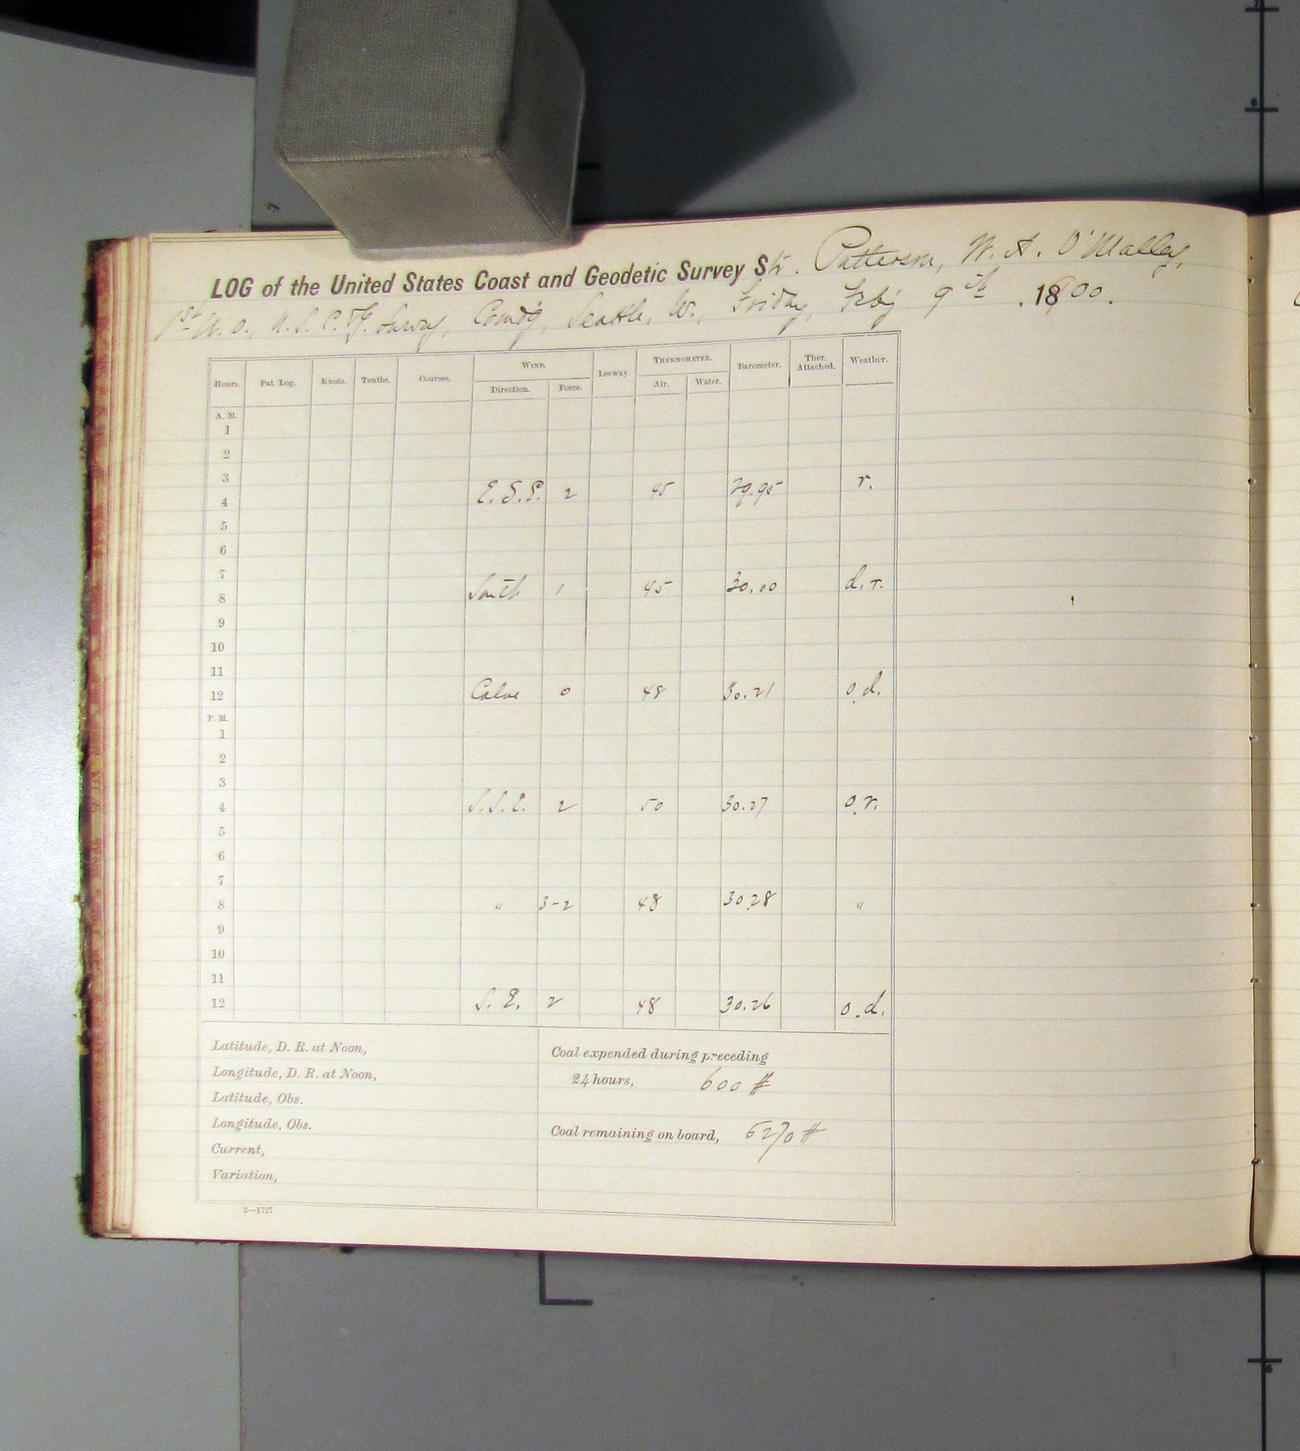 LOG of the United States Coast and Geodetic Survey Str. Patterson, W. A. O'Malley,
1st W. O., U. S. C. & G. Survey, Comd'g, Seattle, W., Friday, Feb'y 9th, 1900.
Hours. Pat. Log. Knots. Tenths. Courses. WIND. Leeway. THERMOMETER. Barometer. Ther. Attached. Weather.
Direction. Force. Air. Water.
A. M.
1
2
3
4 E. S. E. 2 45 29.95 r.
5
6
7
8 South 1 45 30.00 d. r.
9
10
11
12 Calm 0 48 30.21 o. d.
P. M.
1
2
3
4 S. S. E. 2 50 30.27 o. r.
5
6
7
8 " 3-2 48 30.28 "
9
10
11
12 S. E. 2 48 30.26 o. d.
Latitude, D. R. at Noon,
Longitude, D. R. at Noon,
Latitude, Obs.
Longitude, Obs.
Current,
Variation,
Coal expended during preceding
24 hours, 600 #
Coal remaining on board, 6270 #
2—1727